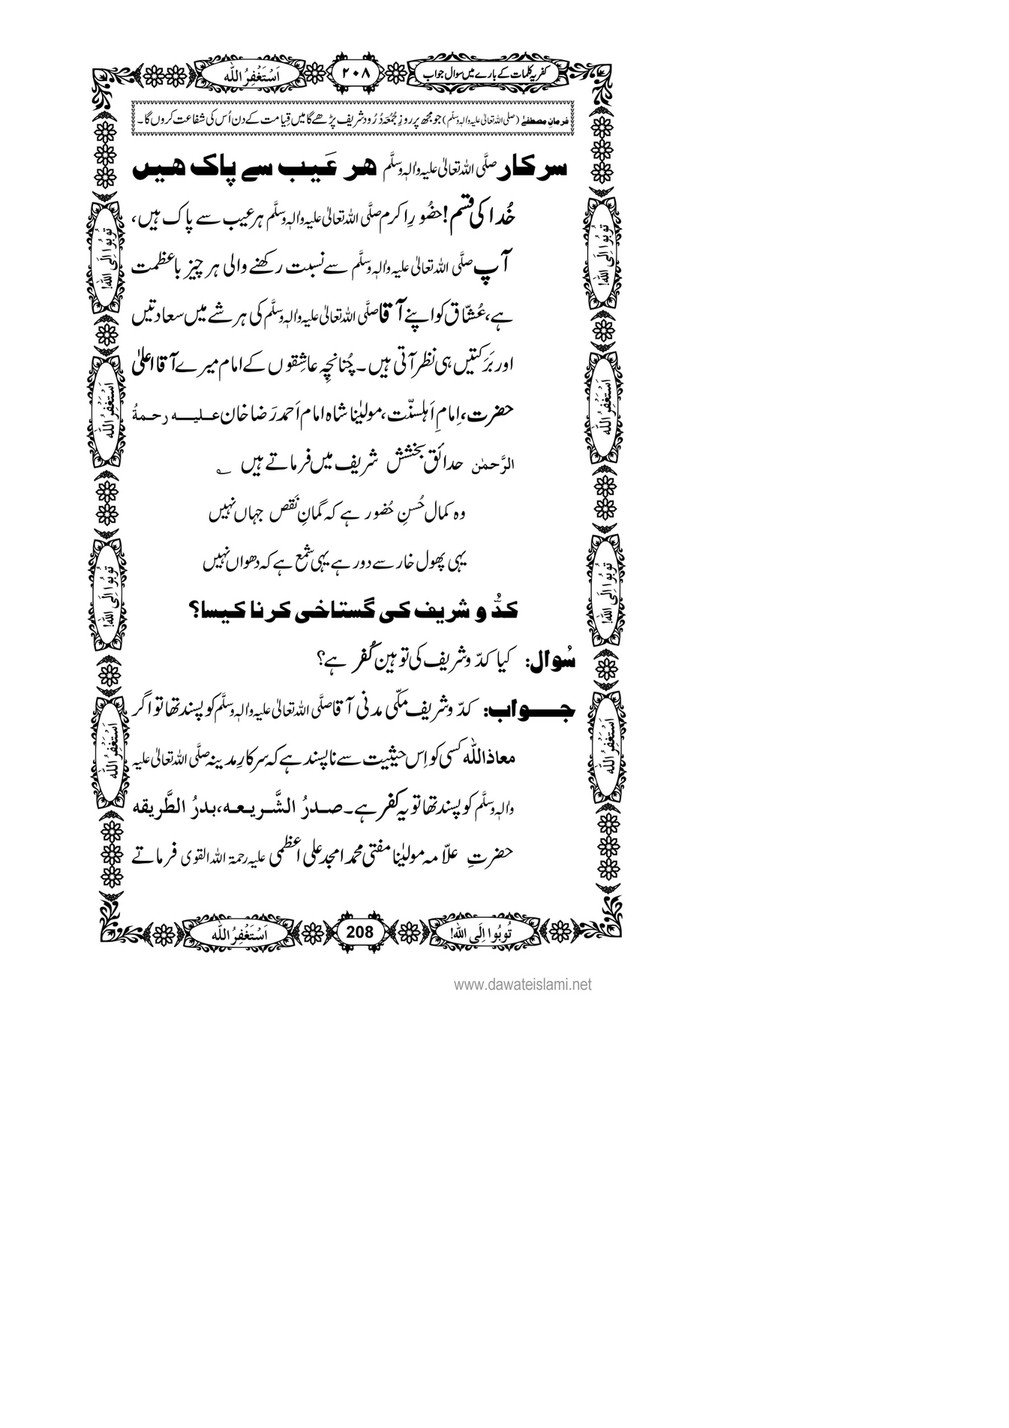 کفریہ کلمات کے بارے میں سوال جواب
۲۰۸
اَسْتَغْفِرُ اللّٰه
فرمانِ مصطفیٰ (صلی اللہ تعالیٰ علیہ والہٖ وسلّم) جو مجھ پر روزِ جُمُعہ دُرُود شریف پڑھے گا میں قِیامت کے دن اُس کی شفاعت کروں گا۔
سرکار صلَّی اللہ تعالیٰ علیہ واٰلہٖ وسلَّم ھر عَیب سے پاک ھیں
خُدا کی قسم! حضُورِ اکرم صلَّی اللہ تعالیٰ علیہ واٰلہٖ وسلَّم ہر عیب سے پاک ہیں،
آپ صلَّی اللہ تعالیٰ علیہ واٰلہٖ وسلَّم سے نسبت رکھنے والی ہر چیز باعظمت
ہے، عُشّاق کو اپنے آقا صلَّی اللہ تعالیٰ علیہ واٰلہٖ وسلَّم کی ہر شے میں سعادتیں
اور بَرَکتیں ہی نظر آتی ہیں۔ چُنانچِہ عاشِقوں کے امام میرے آقا اعلیٰ
حضرت، اِمامِ اَہلسنّت، مولیٰنا شاہ امام اَحمد رَضا خان علیہ رحمۃُ
الرَّحمٰن حدائقِ بخشش شریف میں فرماتے ہیں ؎
وہ کمالِ حُسنِ حُضور ہے کہ گمانِ نَقص جہاں نہیں
یہی پھول خار سے دور ہے یہی شمع ہے کہ دھواں نہیں
کدُّو شریف کی گستاخی کرنا کیسا؟
سُوال: کیا کدّو شریف کی توہین کُفر ہے؟
جواب: کدّو شریف مکّی مدنی آقا صلَّی اللہ تعالیٰ علیہ واٰلہٖ وسلَّم کو پسند تھا تو اگر
معاذاللّٰہ کسی کو اِس حیثیت سے ناپسند ہے کہ سرکارِ مدینہ صلَّی اللہ تعالیٰ علیہ
واٰلہٖ وسلَّم کو پسند تھا تو یہ کفر ہے۔ صدرُ الشَّریعہ، بدرُ الطَّریقہ
حضرتِ علاّمہ مولیٰنا مفتی محمد امجد علی اعظمی علیہ رحمۃ اللہ القوی فرماتے
تُوبُوا اِلَی اللّٰه!
208
اَسْتَغْفِرُ اللّٰه
تُوبُوا اِلَی اللّٰه!
اَسْتَغْفِرُ اللّٰه
تُوبُوا اِلَی اللّٰه!
اَسْتَغْفِرُ اللّٰه
تُوبُوا اِلَی اللّٰه!
اَسْتَغْفِرُ اللّٰه
تُوبُوا اِلَی اللّٰه!
اَسْتَغْفِرُ اللّٰه
www.dawateislami.net